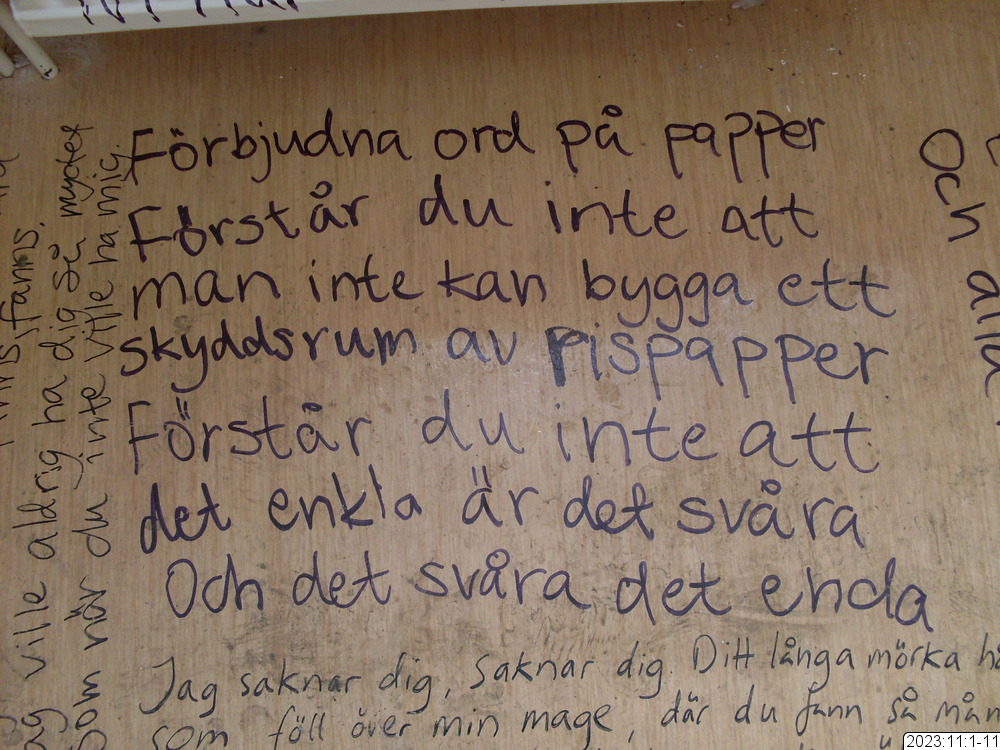 Förbjudna ord på papper
Förstår du inte att
man inte kan bygga ett
skyddsrum av rispapper
Förstår du inte att
det enkla är det svåra
Och det svåra det enda
Jag saknar dig, saknar dig. Ditt långa mörka
som föll över min mage, där du fann så
ville aldrig ha dig så mycket
som när du inte ville ha mig.
fanns.
Och
alla
2023:11:1-11